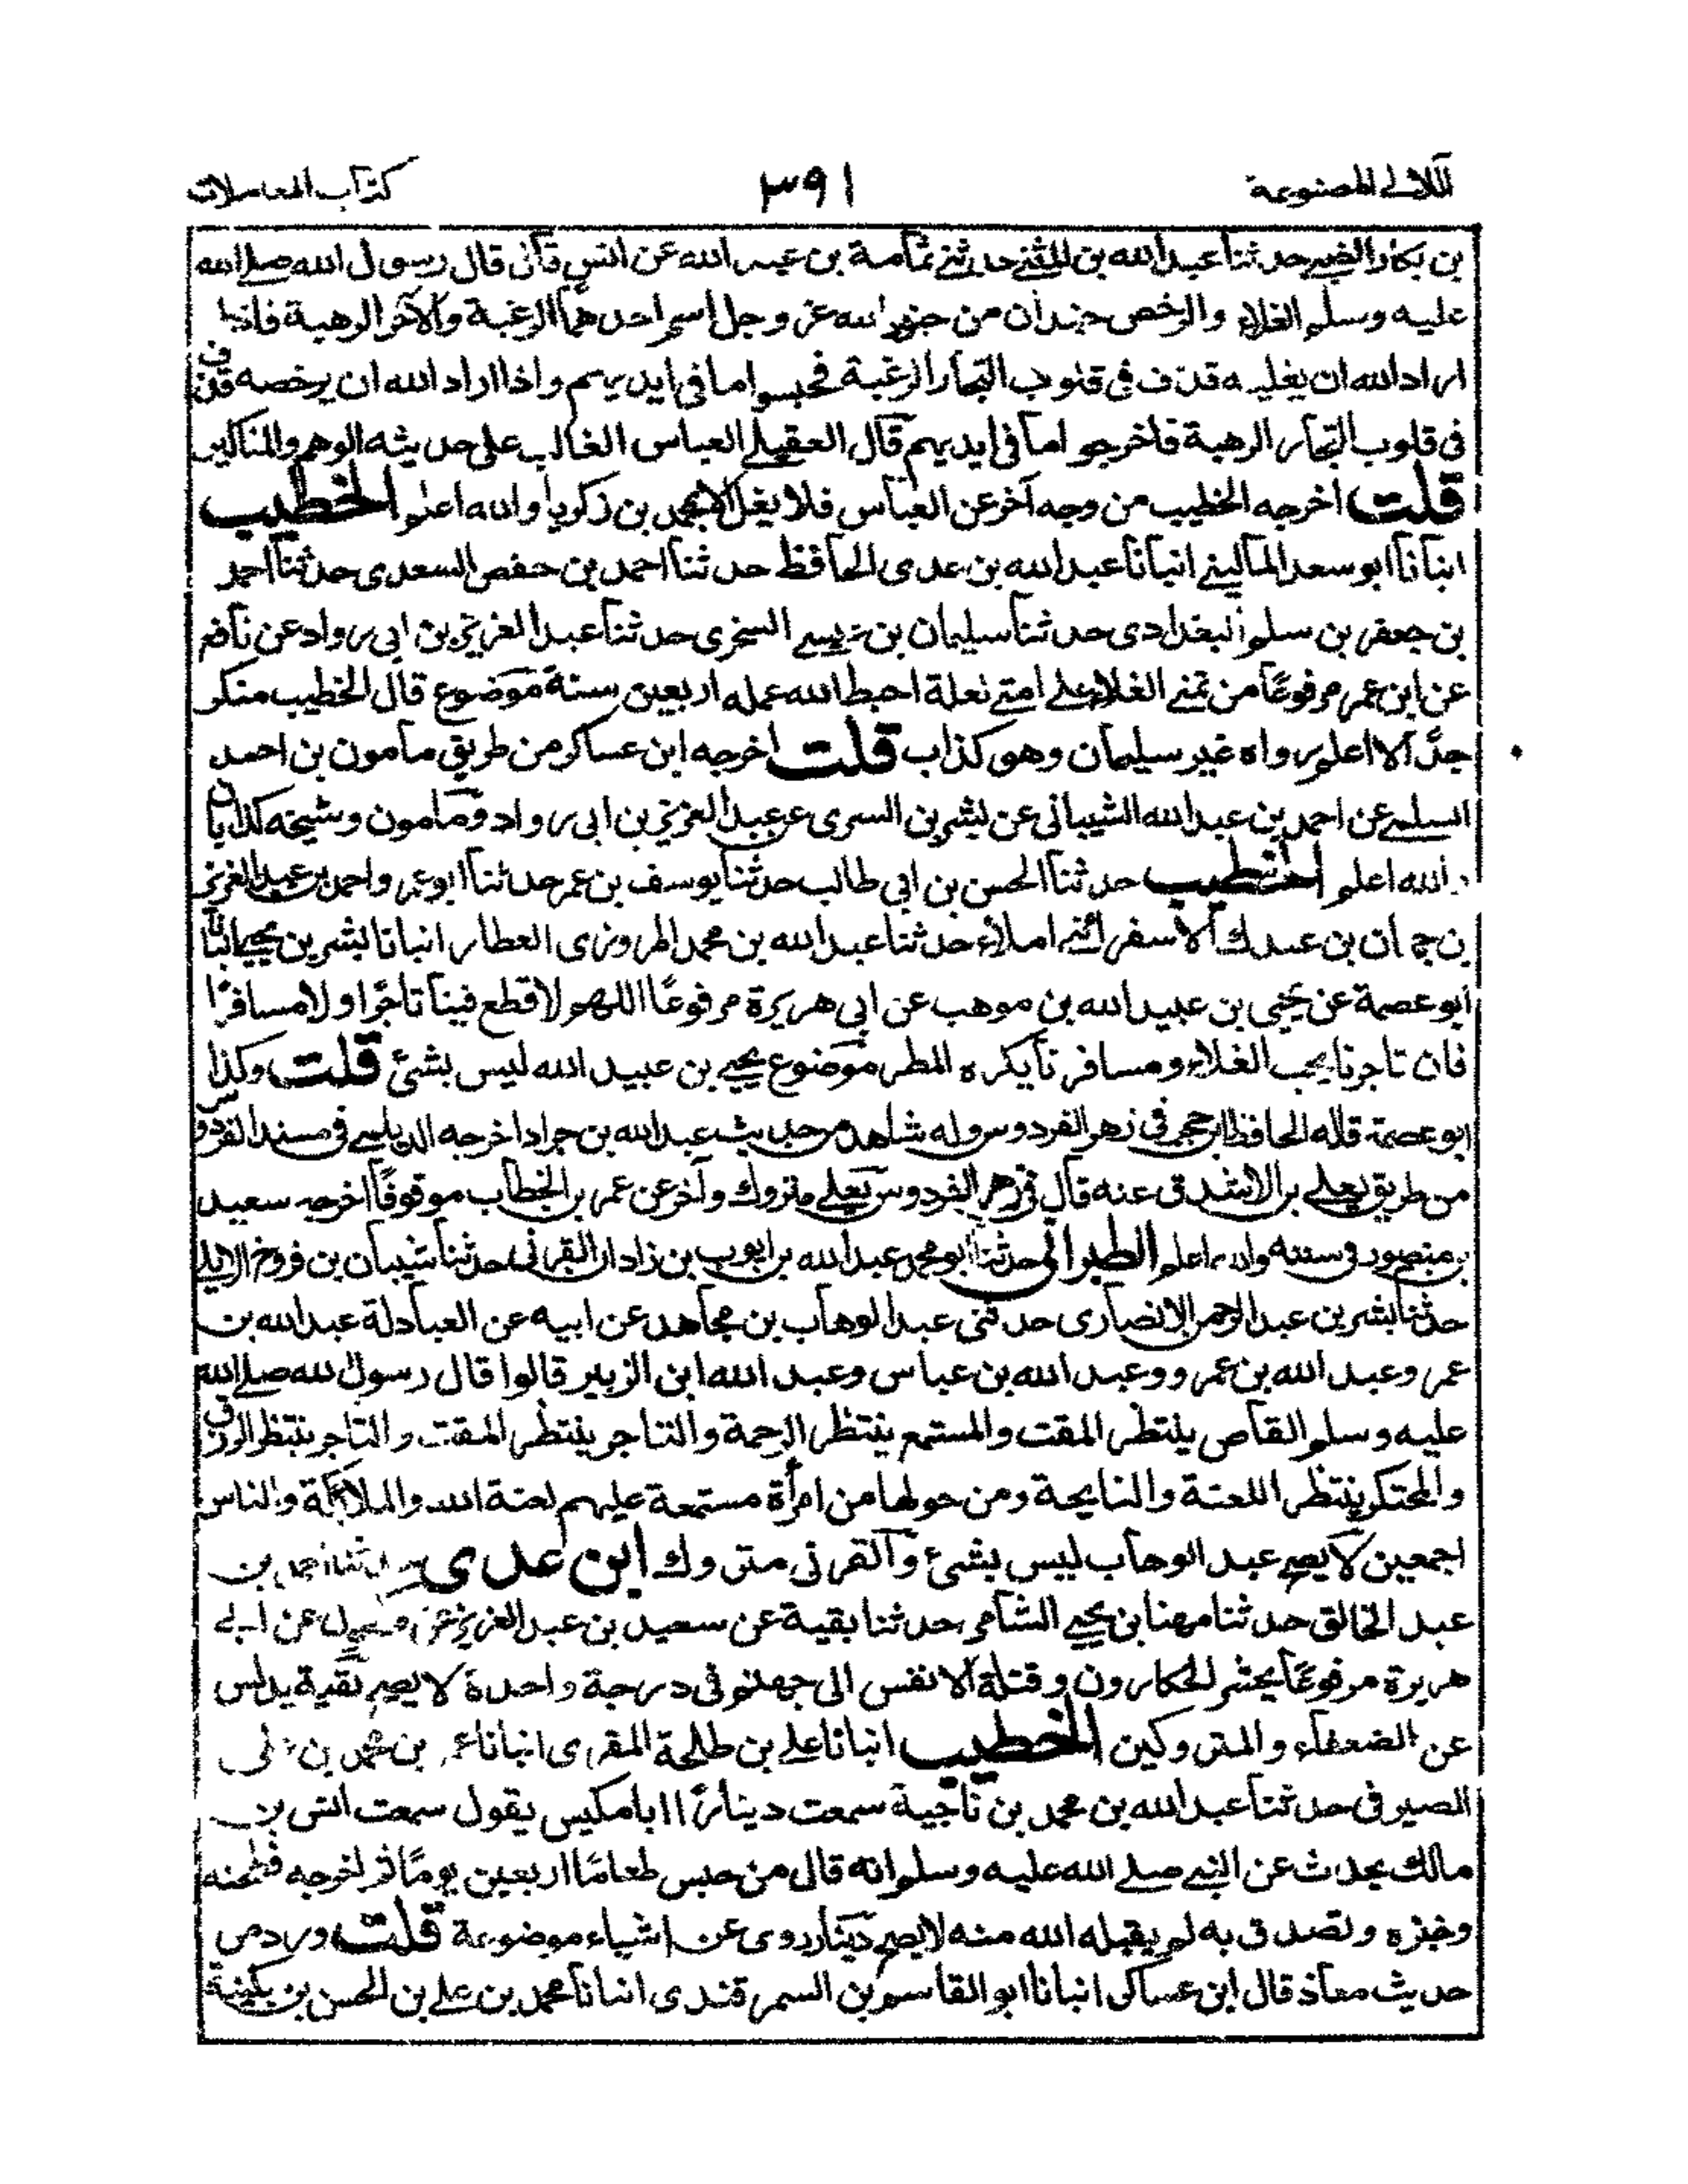 اللآلى المصنوعة
٣٩١
كتاب المعاملات
بن بكار الضبى حدثنا عبد الله بن المثنى حدثنى ثمامة بن عبد الله عن انس قال قال رسول الله صلى الله
عليه وسلم الغلاء والرخص جندان من جنود الله عز وجل اسم احدهما الرغبة والآخر الرهبة فاذا
اراد الله ان يغليه قذف فى قلوب التجار الرغبة فحبسوا ما فى ايديهم واذا اراد الله ان يرخصه قذف
فى قلوب التجار الرهبة فاخرجوا ما فى ايديهم قال العقيلى العباس الغالب على حديثه الوهم والمناكير
قلت اخرجه الخطيب من وجه آخر عن العباس فلا يغل الا بمحمد بن زكريا والله اعلم الخطيب
انبانا ابو سعد المالينى انبانا عبد الله بن عدى الحافظ حدثنا احمد بن حفص السعدى حدثنا احمد
بن جعفر بن سلم البغدادى حدثنا سليمان بن عيسى السجزى حدثنا عبد العزيز بن ابى رواد عن نافع
عن ابن عمر مرفوعًا من تمنى الغلاء على امتى لعلة احبط الله عمله اربعين سنة موضوع قال الخطيب منكر
جدًّا لا اعلم رواه غير سليمان وهو كذاب قلت اخرجه ابن عساكر من طريق مأمون بن احمد
السلمى عن احمد بن عبد الله الشيبانى عن بشر بن السرى عن عبد العزيز بن ابى رواد ومأمون وشيخه كذابان
والله اعلم الخطيب حدثنا الحسن بن ابى طالب حدثنا يوسف بن عمر حدثنا ابو عمرو احمد بن عبد العزيز
بن جمان بن عبدك الاسفرائنى املاء حدثنا عبد الله بن محمد المروزى العطار انبانا بشر بن يحيى انبانا
ابو عصمة عن يحيى بن عبيد الله بن موهب عن ابى هريرة مرفوعًا اللهم لا قطع فينا تاجرًا ولا مسافرًا
فان تاجرنا يحب الغلاء ومسافرنا يكره المطر موضوع يحيى بن عبيد الله ليس بشئ قلت وكذا
ابو عصمة قاله الحافظ ابن حجر فى زهر الفردوس وله شاهد من حديث عبد الله بن جراد اخرجه الديلمى فى مسند الفردوس
من طريق يعلى بن الاشدق عنه قال فى زهر الفردوس يعلى متروك وآخر عن عمر بن الخطاب موقوفًا اخرجه سعيد
بن منصور فى سننه والله اعلم الطبرانى حدثنا ابو محمد عبد الله بن ايوب بن زادان القرنى حدثنا شيبان بن فروخ الايلى
حدثنا بشر بن عبد الرحمن الانصارى حدثنى عبد الوهاب بن مجاهد عن ابيه عن العبادلة عبد الله بن
عمر وعبد الله بن عمرو وعبد الله بن عباس وعبد الله ابن الزبير قالوا قال رسول الله صلى الله
عليه وسلم القاص ينتظر المقت والمستمع ينتظر الرحمة والتاجر ينتظر المقت والتاجر ينتظر الرزق
والمحتكر ينتظر اللعنة والنايحة ومن حولها من امرأة مستمعة عليهم لعنة الله والملائكة والناس
اجمعين لا يصح عبد الوهاب ليس بشئ والقرنى متروك ابن عدى حدثنا احمد بن
عبد الخالق حدثنا مهنا بن يحيى الشامى حدثنا بقية عن سعيد بن عبد العزيز عن مكحول عن ابى
هريرة مرفوعًا يحشر الحكارون وقتلة الانفس الى جهنم فى درجة واحدة لا يصح بقية يدلس
عن الضعفاء والمتروكين الخطيب انبانا على بن طلحة المقرى انبانا عمر بن محمد بن على
الصيرفى حدثنا عبد الله بن محمد بن ناجية سمعت دينارًا ابا مكيس يقول سمعت انس بن
مالك يحدث عن النبى صلى الله عليه وسلم انه قال من حبس طعامًا اربعين يومًا ثم اخرجه فطحنه
وخبزه وتصدق به لم يقبله الله منه لا يصح دينار روى عن اشياء موضوعة قلت ورد من
حديث معاذ قال ابن عساكر انبانا ابو القاسم بن السمرقندى انبانا محمد بن على بن الحسن بن سكينة